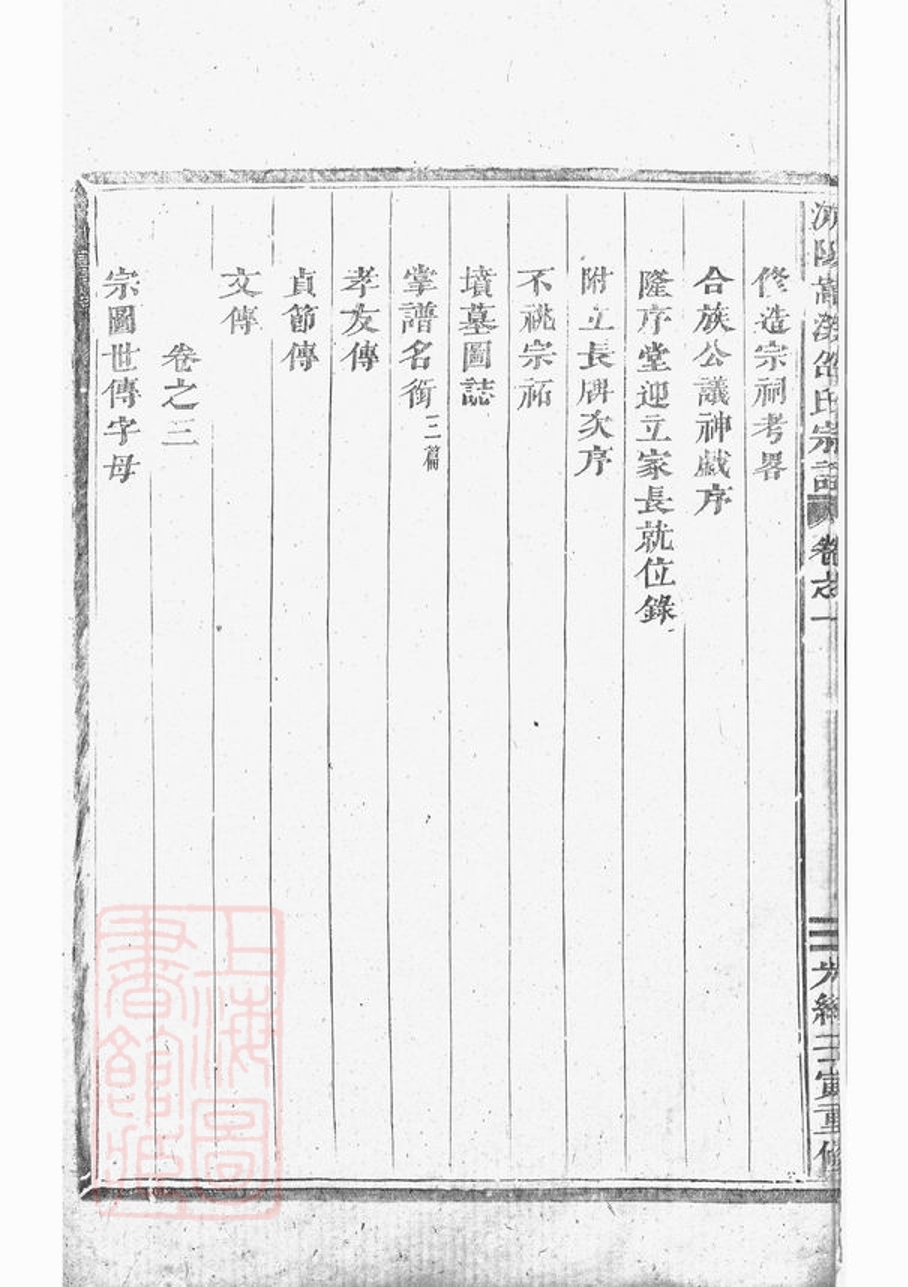 嵩溪邵氏宗譜 卷之一
光緒壬寅重修
修造宗祠考畧
合族公議神戯序
隆序堂迎立家長就位錄
附立長牌次序
不祧宗祏
墳墓圖誌
掌譜名銜三篇
孝友傳
貞節傳
文傳
卷之三
宗圖世傳字母
上海圖書館藏